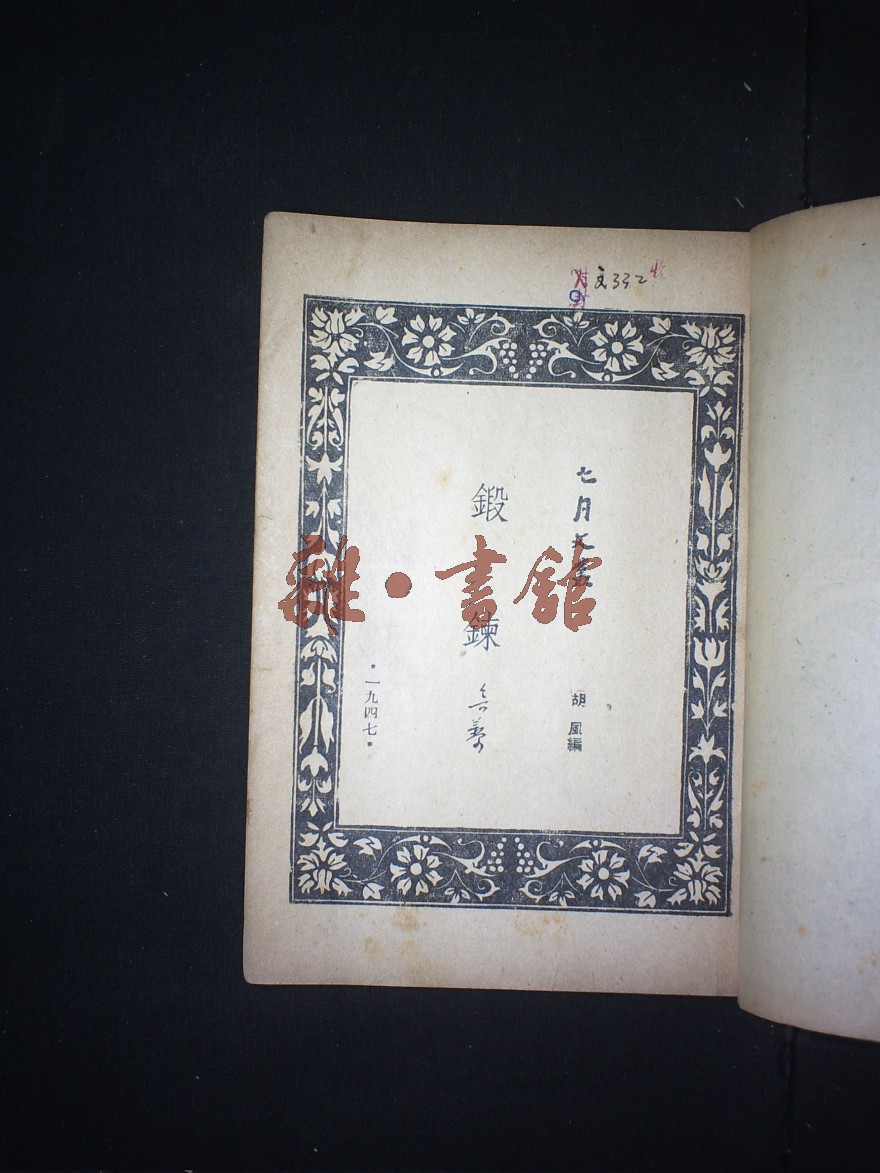 文332
七月文叢
胡風編
鍛鍊
·一九四七·
雜·書館